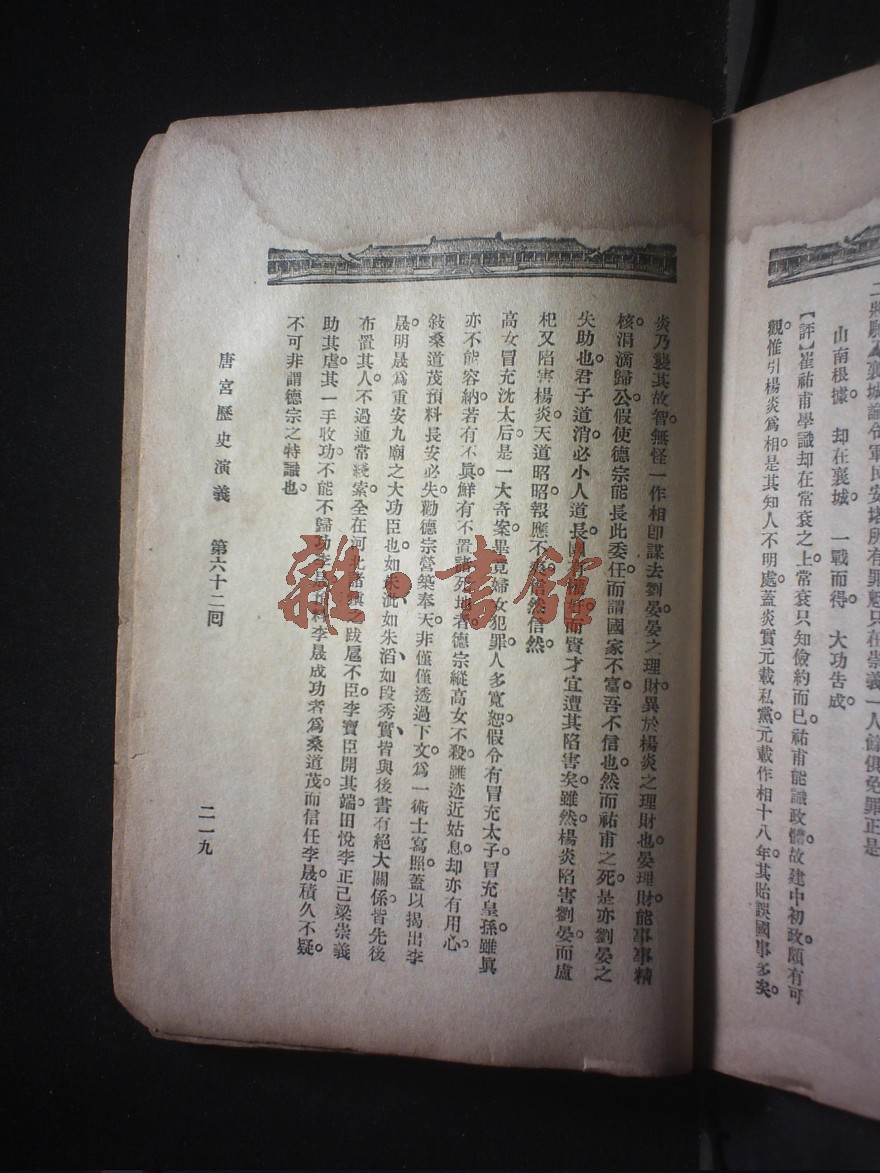 二將 襄城諭令軍民安堵所有罪魁只在崇義一人餘俱免罪正是
山南根據。 却在襄城。 一戰而得。 大功告成。
【評】崔祐甫學識却在常袞之上常袞只知儉約而已祐甫能識政體故建中初政頗有可
觀惟引楊炎爲相是其知人不明處蓋炎實元載私黨元載作相十八年其貽誤國事多矣。
炎乃襲其故智無怪一作相卽謀去劉晏晏之理財異於楊炎之理財也晏理財能事事精
核涓滴歸公假使德宗能長此委任而謂國家不富吾不信也然而祐甫之死是亦劉晏之
失助也。君子道消必小人道長國 而賢才宜遭其陷害矣雖然楊炎陷害劉晏而盧
杞又陷害楊炎天道昭昭報應不爽信然信然。
高女冒充沈太后是一大奇案畢竟婦女犯罪人多寬恕假令有冒充太子冒充皇孫雖眞
亦不能容納若有不眞鮮有不置諸死地者德宗縱高女不殺雖迹近姑息却亦有用心。
敍桑道茂預料長安必失勸德宗營築奉天非僅僅透過下文爲一術士寫照蓋以揭出李
晟明晟爲重安九廟之大功臣也如朱泚如朱滔如段秀實皆與後書有絕大關係皆先後
布置其人不過通常綫索全在河北諸鎭之跋扈不臣李寶臣開其端田悅李正己梁崇義
助其虐其一手收功不能不歸功李晟 料李晟成功者爲桑道茂而信任李晟積久不疑。
不可非謂德宗之特識也。
唐宮歷史演義 第六十二回 二一九
雜·書館